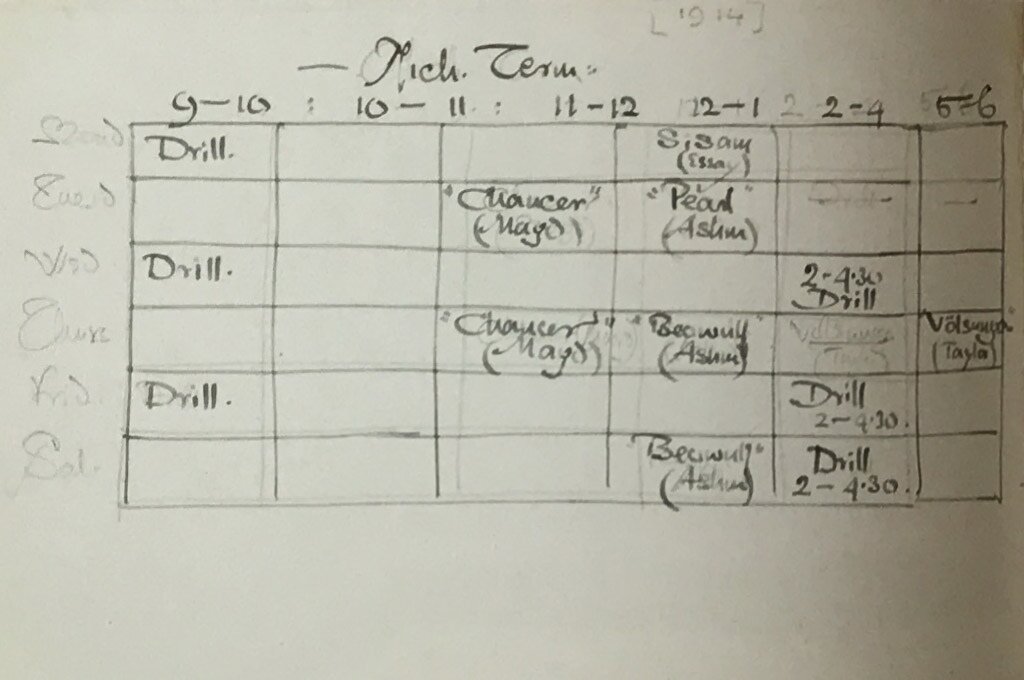 [1914]
— Mich. Term:
9–10 : 10 – 11 : 11–12 12–1 2–4 5–6
Mond Drill. Sisam
(Essay)
Tues "Chaucer" "Pearl" —
(Magd) (Ashm)
Wed Drill. 2–4.30
Drill
Thurs "Chaucer" "Beowulf" Völsunga "Völsunga"
(Magd) (Ashm) (Taylo) (Taylo)
Frid. Drill. Drill
2–4.30.
Sat. "Beowulf" Drill
(Ashm) 2–4.30.